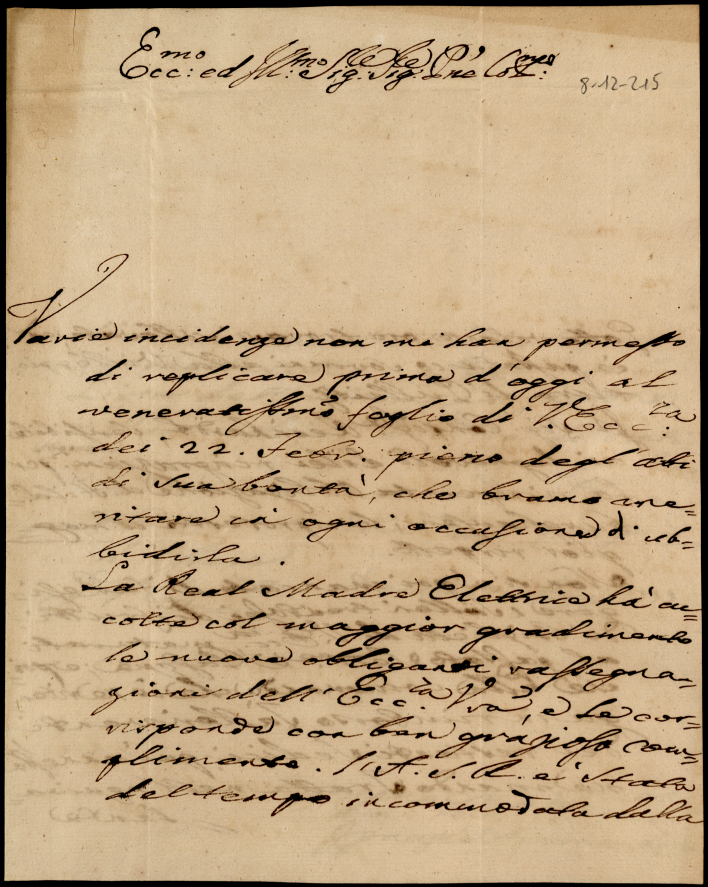 Ecc:mo ed Ill:mo Sig.le Sig.le P'ne Col:mo
8-12-215
Varie incidenze non mi han permesso
di replicare prima d'oggi al
veneratissimo foglio di V. Ecc:za
dei 22. Febr. pieno degl'atti
di sua bontà, che bramo me=
ritare in ogni occasione di ub=
bidirla.
La Real Madre Elettrice há ac=
colte col maggior gradimento
le nuove obliganti rassegna=
zioni dell'Ecc.za Vra, e Le cor=
risponde con ben grazioso com=
plimento. L'A. S. R. e' stata
del tempo incommodata dalla